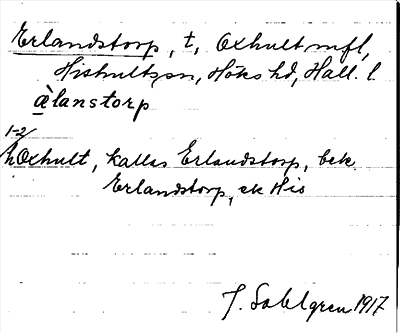 Erlandstorp, t, Oxhult mfl,
Hishult sn, Höks hd, Hall. l.
àlanstorp
1-2/
h Oxhult, kallas Erlandstorp, bek.
Erlandstorp, ek His
J. Sahlgren 1917